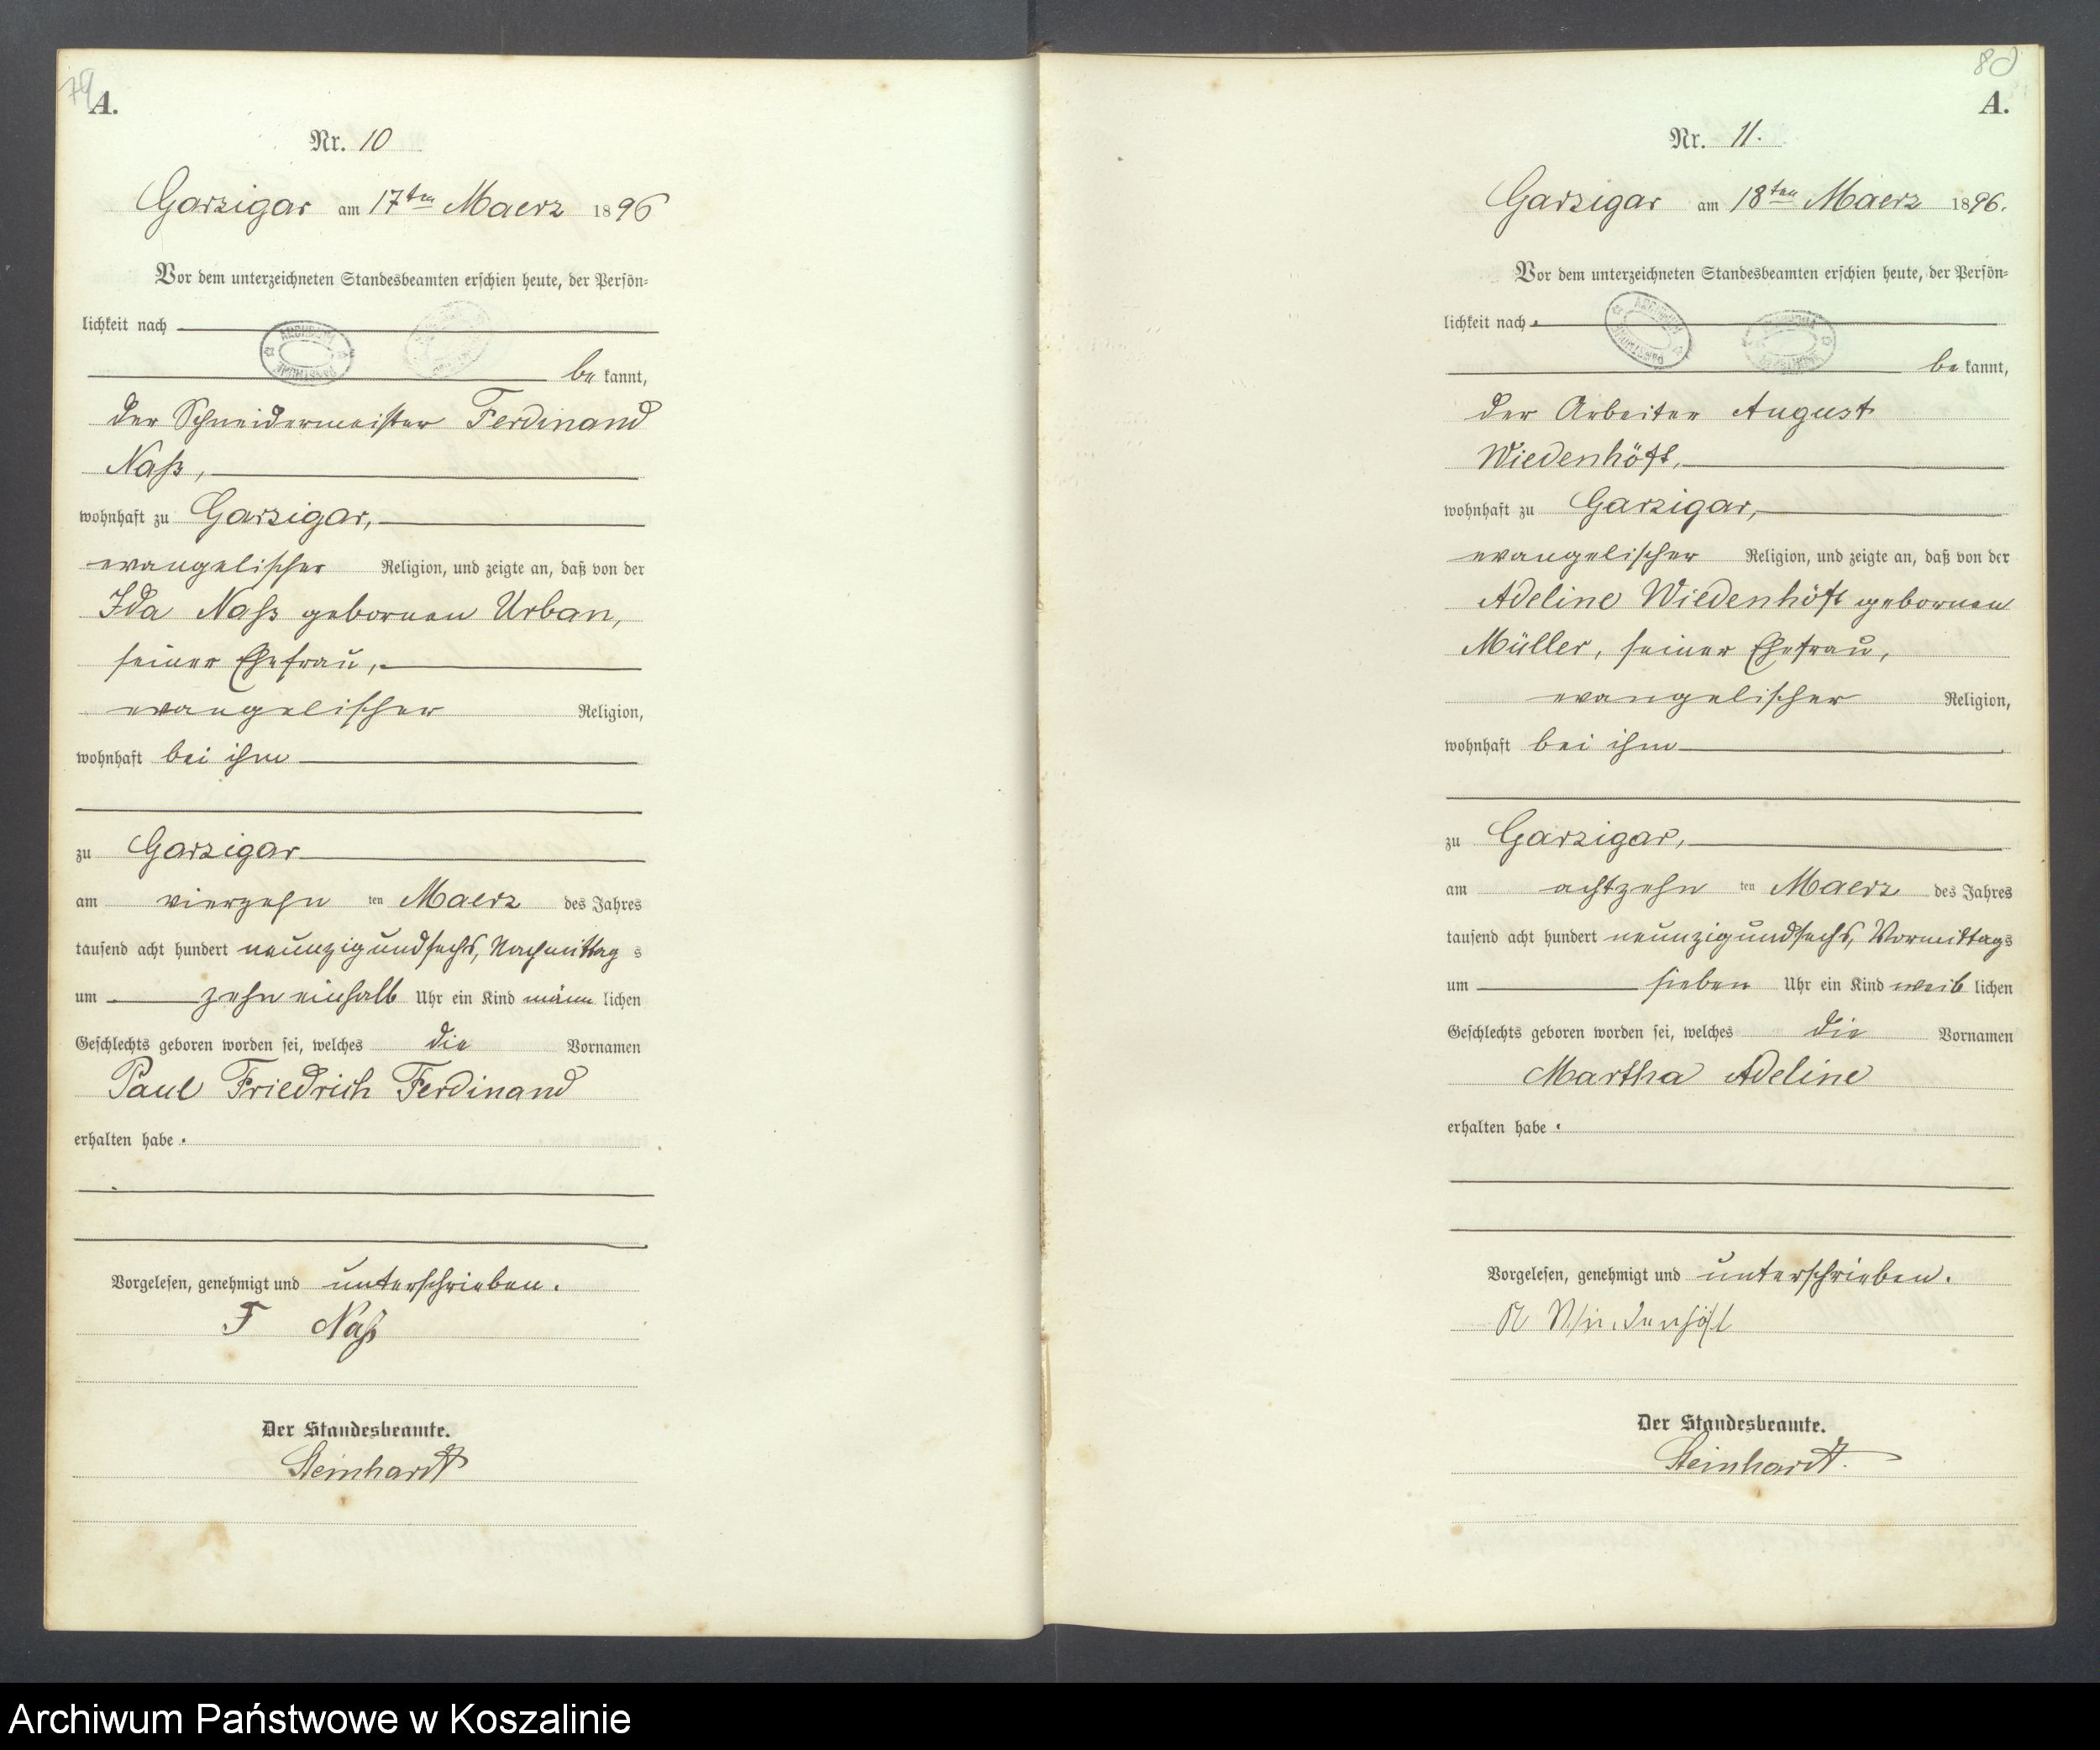 79
A.
Nr. 10
Garzigar am 17ten Maerz 1896
Vor dem unterzeichneten Standesbeamten erschien heute, der Persön-
lichkeit nach
ARCHIWUM
PAŃSTWOWE
bekannt,
der Schneidermeister Ferdinand
Naß,
wohnhaft zu Garzigar,
evangelischer Religion, und zeigte an, daß von der
Ida Naß gebornen Urban,
seiner Ehefrau,
evangelischer Religion,
wohnhaft bei ihm
zu Garzigar
am vierzehn ten Maerz des Jahres
tausend acht hundert neunzig und sechs, Nachmittag s
um zehn einhalb Uhr ein Kind männ lichen
Geschlechts geboren worden sei, welches die Vornamen
Paul Friedrich Ferdinand
erhalten habe.
Vorgelesen, genehmigt und unterschrieben.
F Naß
Der Standesbeamte.
Steinhardt
80
A.
Nr. 11.
Garzigar am 18ten Maerz 1896.
Vor dem unterzeichneten Standesbeamten erschien heute, der Persön-
lichkeit nach
ARCHIWUM
PAŃSTWOWE
bekannt,
der Arbeiter August
Wiedenhöft,
wohnhaft zu Garzigar,
evangelischer Religion, und zeigte an, daß von der
Adeline Wiedenhöft gebornen
Müller, seiner Ehefrau,
evangelischer Religion,
wohnhaft bei ihm
zu Garzigar,
am achtzehn ten Maerz des Jahres
tausend acht hundert neunzig und sechs, Vormittags
um sieben Uhr ein Kind weib lichen
Geschlechts geboren worden sei, welches die Vornamen
Martha Adeline
erhalten habe.
Vorgelesen, genehmigt und unterschrieben.
A Wiedenhöft
Der Standesbeamte.
Steinhardt.
Archiwum Państwowe w Koszalinie